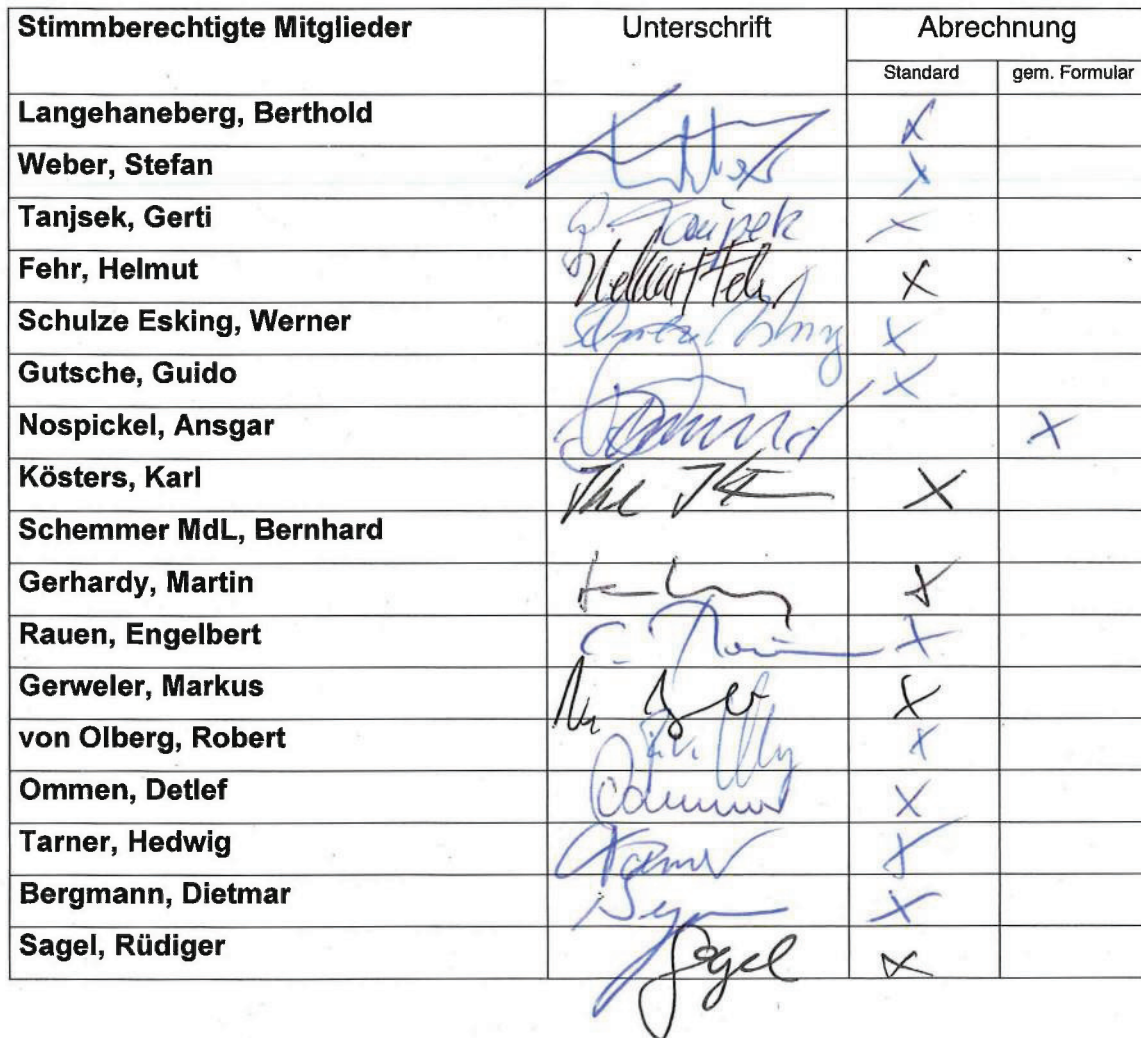 Stimmberechtigte Mitglieder Unterschrift Abrechnung
Standard gem. Formular
Langehaneberg, Berthold X
Weber, Stefan X
Tanjsek, Gerti G. Tanjsek X
Fehr, Helmut Helmut Fehr X
Schulze Esking, Werner X
Gutsche, Guido X
Nospickel, Ansgar X
Kösters, Karl X
Schemmer MdL, Bernhard
Gerhardy, Martin X
Rauen, Engelbert X
Gerweler, Markus X
von Olberg, Robert X
Ommen, Detlef Ommen X
Tarner, Hedwig Tarner X
Bergmann, Dietmar X
Sagel, Rüdiger Sagel X